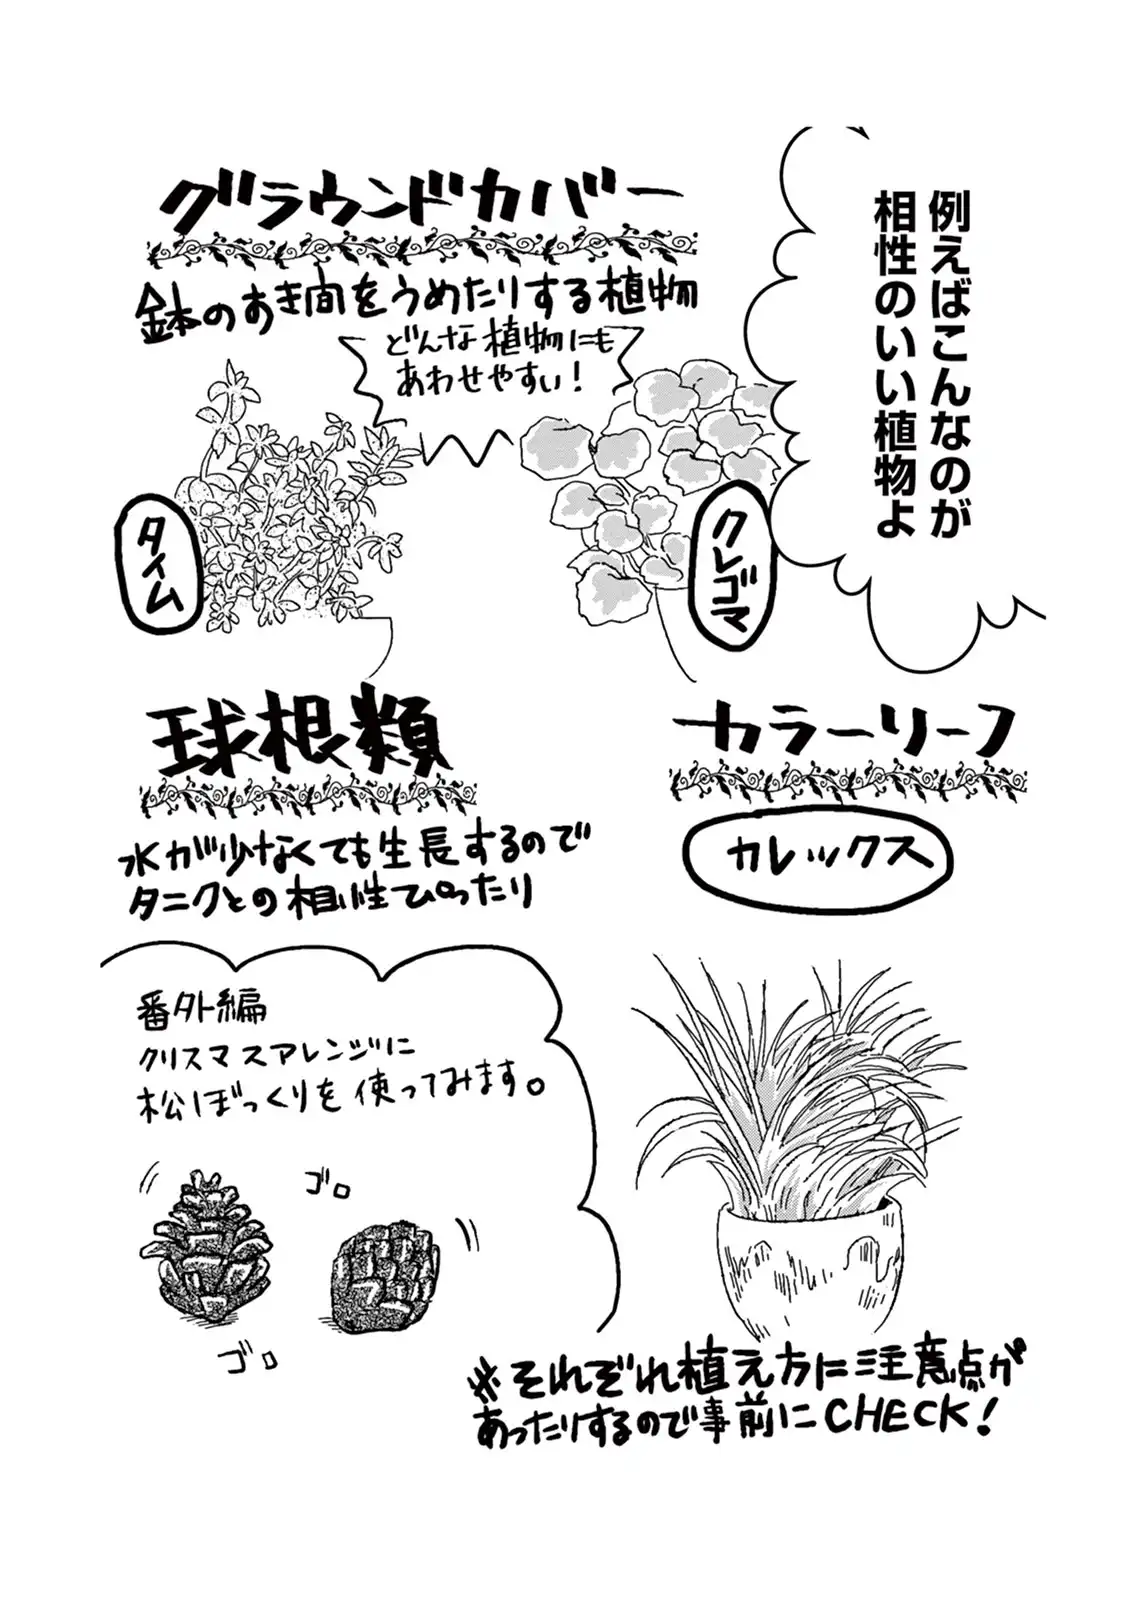 例えばこんなのが
相性のいい植物よ
グラウンドカバー
鉢のすき間をうめたりする植物
どんな植物にも
あわせやすい!
クレゴマ
タイム
カラーリーフ
カレックス
球根類
水が少なくても生長するので
タニクとの相性ぴったり
番外編
クリスマスアレンジに
松ぼっくりを使ってみます。
ゴロ
ゴロ
※それぞれ植え方に注意点が
あったりするので事前にCHECK!